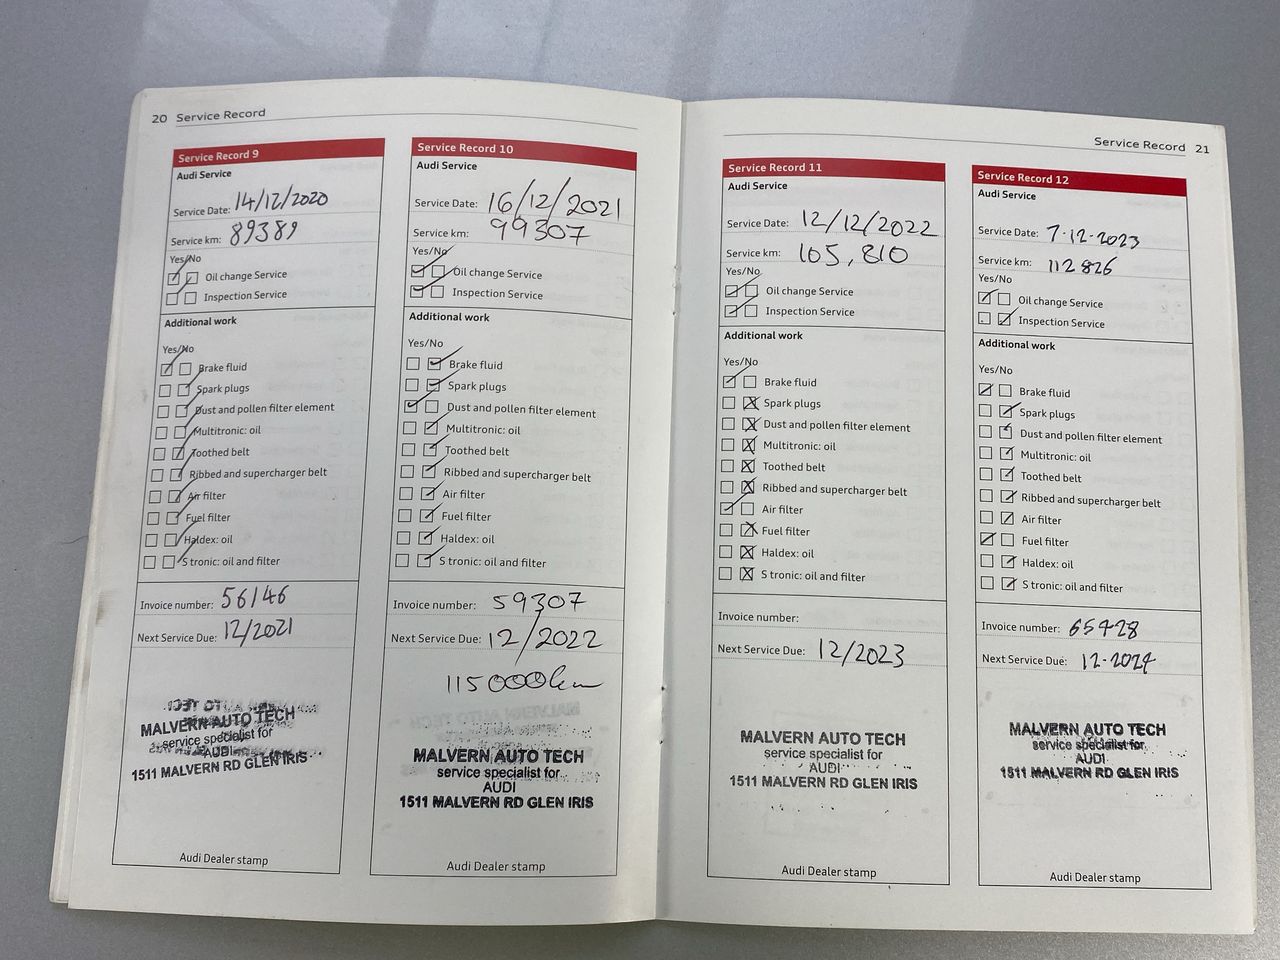 20 Service Record
Service Record 9
Audi Service
Service Date: 14/12/2020
Service km: 89389
Yes/No
Oil change Service
Inspection Service
Additional work
Yes/No
Brake fluid
Spark plugs
Dust and pollen filter element
Multitronic: oil
Toothed belt
Ribbed and supercharger belt
Air filter
Fuel filter
Haldex: oil
S tronic: oil and filter
Invoice number: 56146
Next Service Due: 12/2021
MALVERN AUTO TECH
service specialist for
AUDI
1511 MALVERN RD GLEN IRIS
Audi Dealer stamp
Service Record 10
Audi Service
Service Date: 16/12/2021
Service km: 99307
Yes/No
Oil change Service
Inspection Service
Additional work
Yes/No
Brake fluid
Spark plugs
Dust and pollen filter element
Multitronic: oil
Toothed belt
Ribbed and supercharger belt
Air filter
Fuel filter
Haldex: oil
S tronic: oil and filter
Invoice number: 59307
Next Service Due: 12/2022
115000km
MALVERN AUTO TECH
service specialist for
AUDI
1511 MALVERN RD GLEN IRIS
Audi Dealer stamp
Service Record 21
Service Record 11
Audi Service
Service Date: 12/12/2022
Service km: 105,810
Yes/No
Oil change Service
Inspection Service
Additional work
Yes/No
Brake fluid
Spark plugs
Dust and pollen filter element
Multitronic: oil
Toothed belt
Ribbed and supercharger belt
Air filter
Fuel filter
Haldex: oil
S tronic: oil and filter
Invoice number:
Next Service Due: 12/2023
MALVERN AUTO TECH
service specialist for
AUDI
1511 MALVERN RD GLEN IRIS
Audi Dealer stamp
Service Record 12
Audi Service
Service Date: 7-12-2023
Service km: 112826
Yes/No
Oil change Service
Inspection Service
Additional work
Yes/No
Brake fluid
Spark plugs
Dust and pollen filter element
Multitronic: oil
Toothed belt
Ribbed and supercharger belt
Air filter
Fuel filter
Haldex: oil
S tronic: oil and filter
Invoice number: 65428
Next Service Due: 12-2024
MALVERN AUTO TECH
service specialist for
AUDI
1511 MALVERN RD GLEN IRIS
Audi Dealer stamp